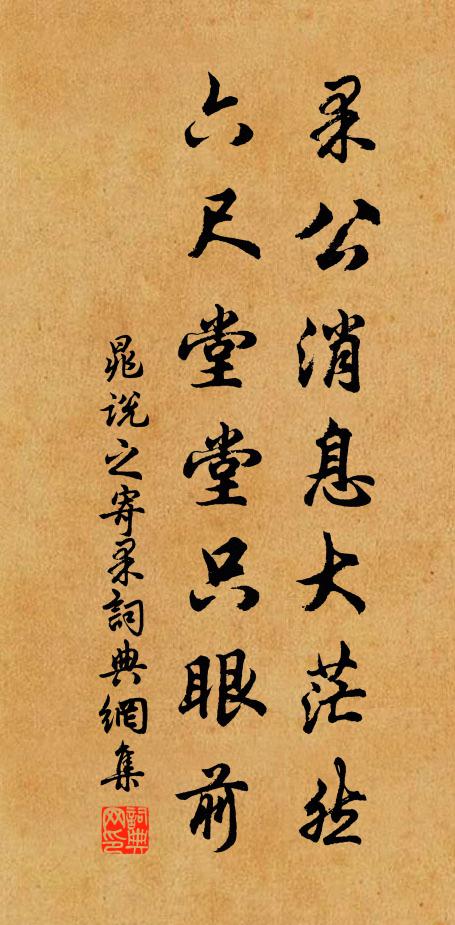 杲公消息大茫然
六尺堂堂只眼前
晁說之寄杲詞典網集
詞典网印